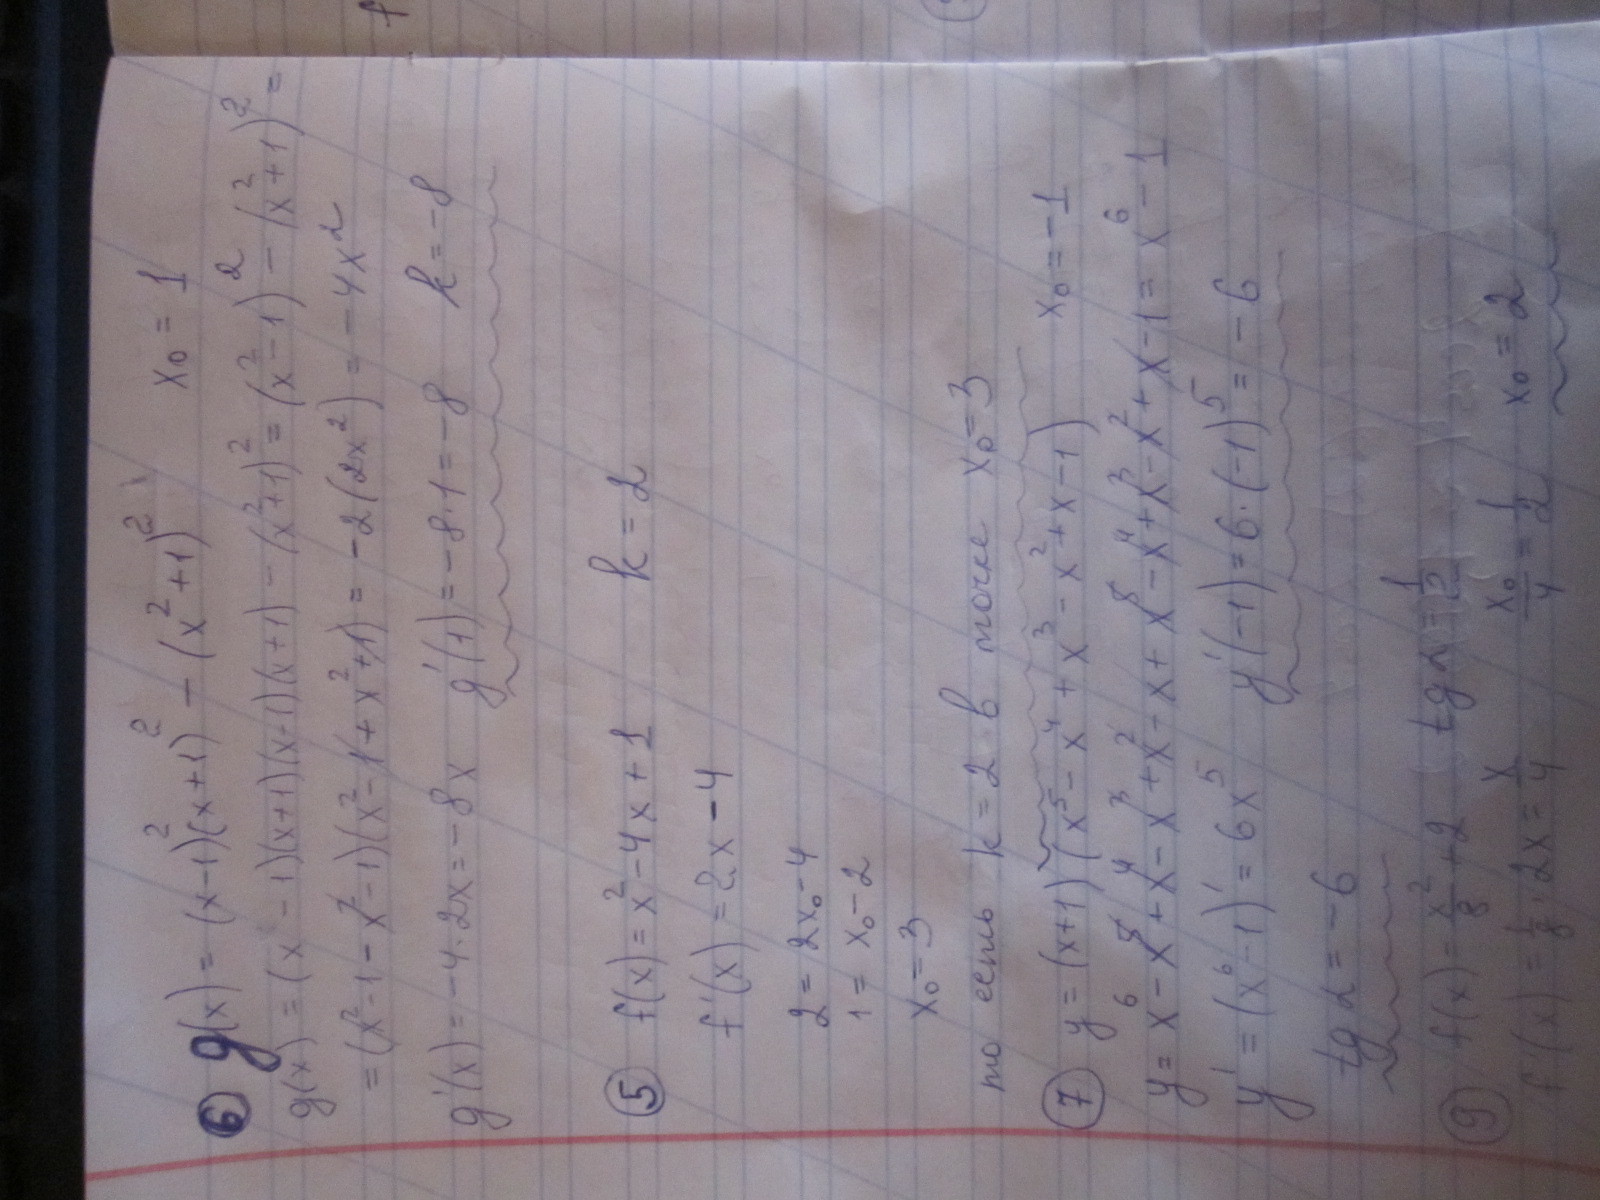 ⑥ g(x) = (x-1)²(x+1)² - (x²+1)² x₀ = 1
g(x) = (x-1)(x+1)(x-1)(x+1) - (x²+1)² = (x²-1)² - (x²+1)² =
= (x²-1-x²-1)(x²-1+x²+1) = -2(2x²) = -4x²
g'(x) = -4·2x = -8x g'(1) = -8·1 = -8 k = -8
⑤ f(x) = x²-4x+1 k = 2
f'(x) = 2x-4
2 = 2x₀-4
1 = x₀-2
x₀=3
то есть k=2 в точке x₀=3
⑦ y = (x+1)(x⁵-x⁴+x³-x²+x-1) x₀ = -1
y = x⁶-x⁵+x⁴-x³+x²-x+x⁵-x⁴+x³-x²+x-1 = x⁶-1
y' = (x⁶-1)' = 6x⁵ y'(-1) = 6·(-1)⁵ = -6
tg α = -6
⑨ f(x) = x²/8 + 2 tg α = 1/2
f'(x) = 1/8·2x = x/4 x₀/4 = 1/2 x₀ = 2